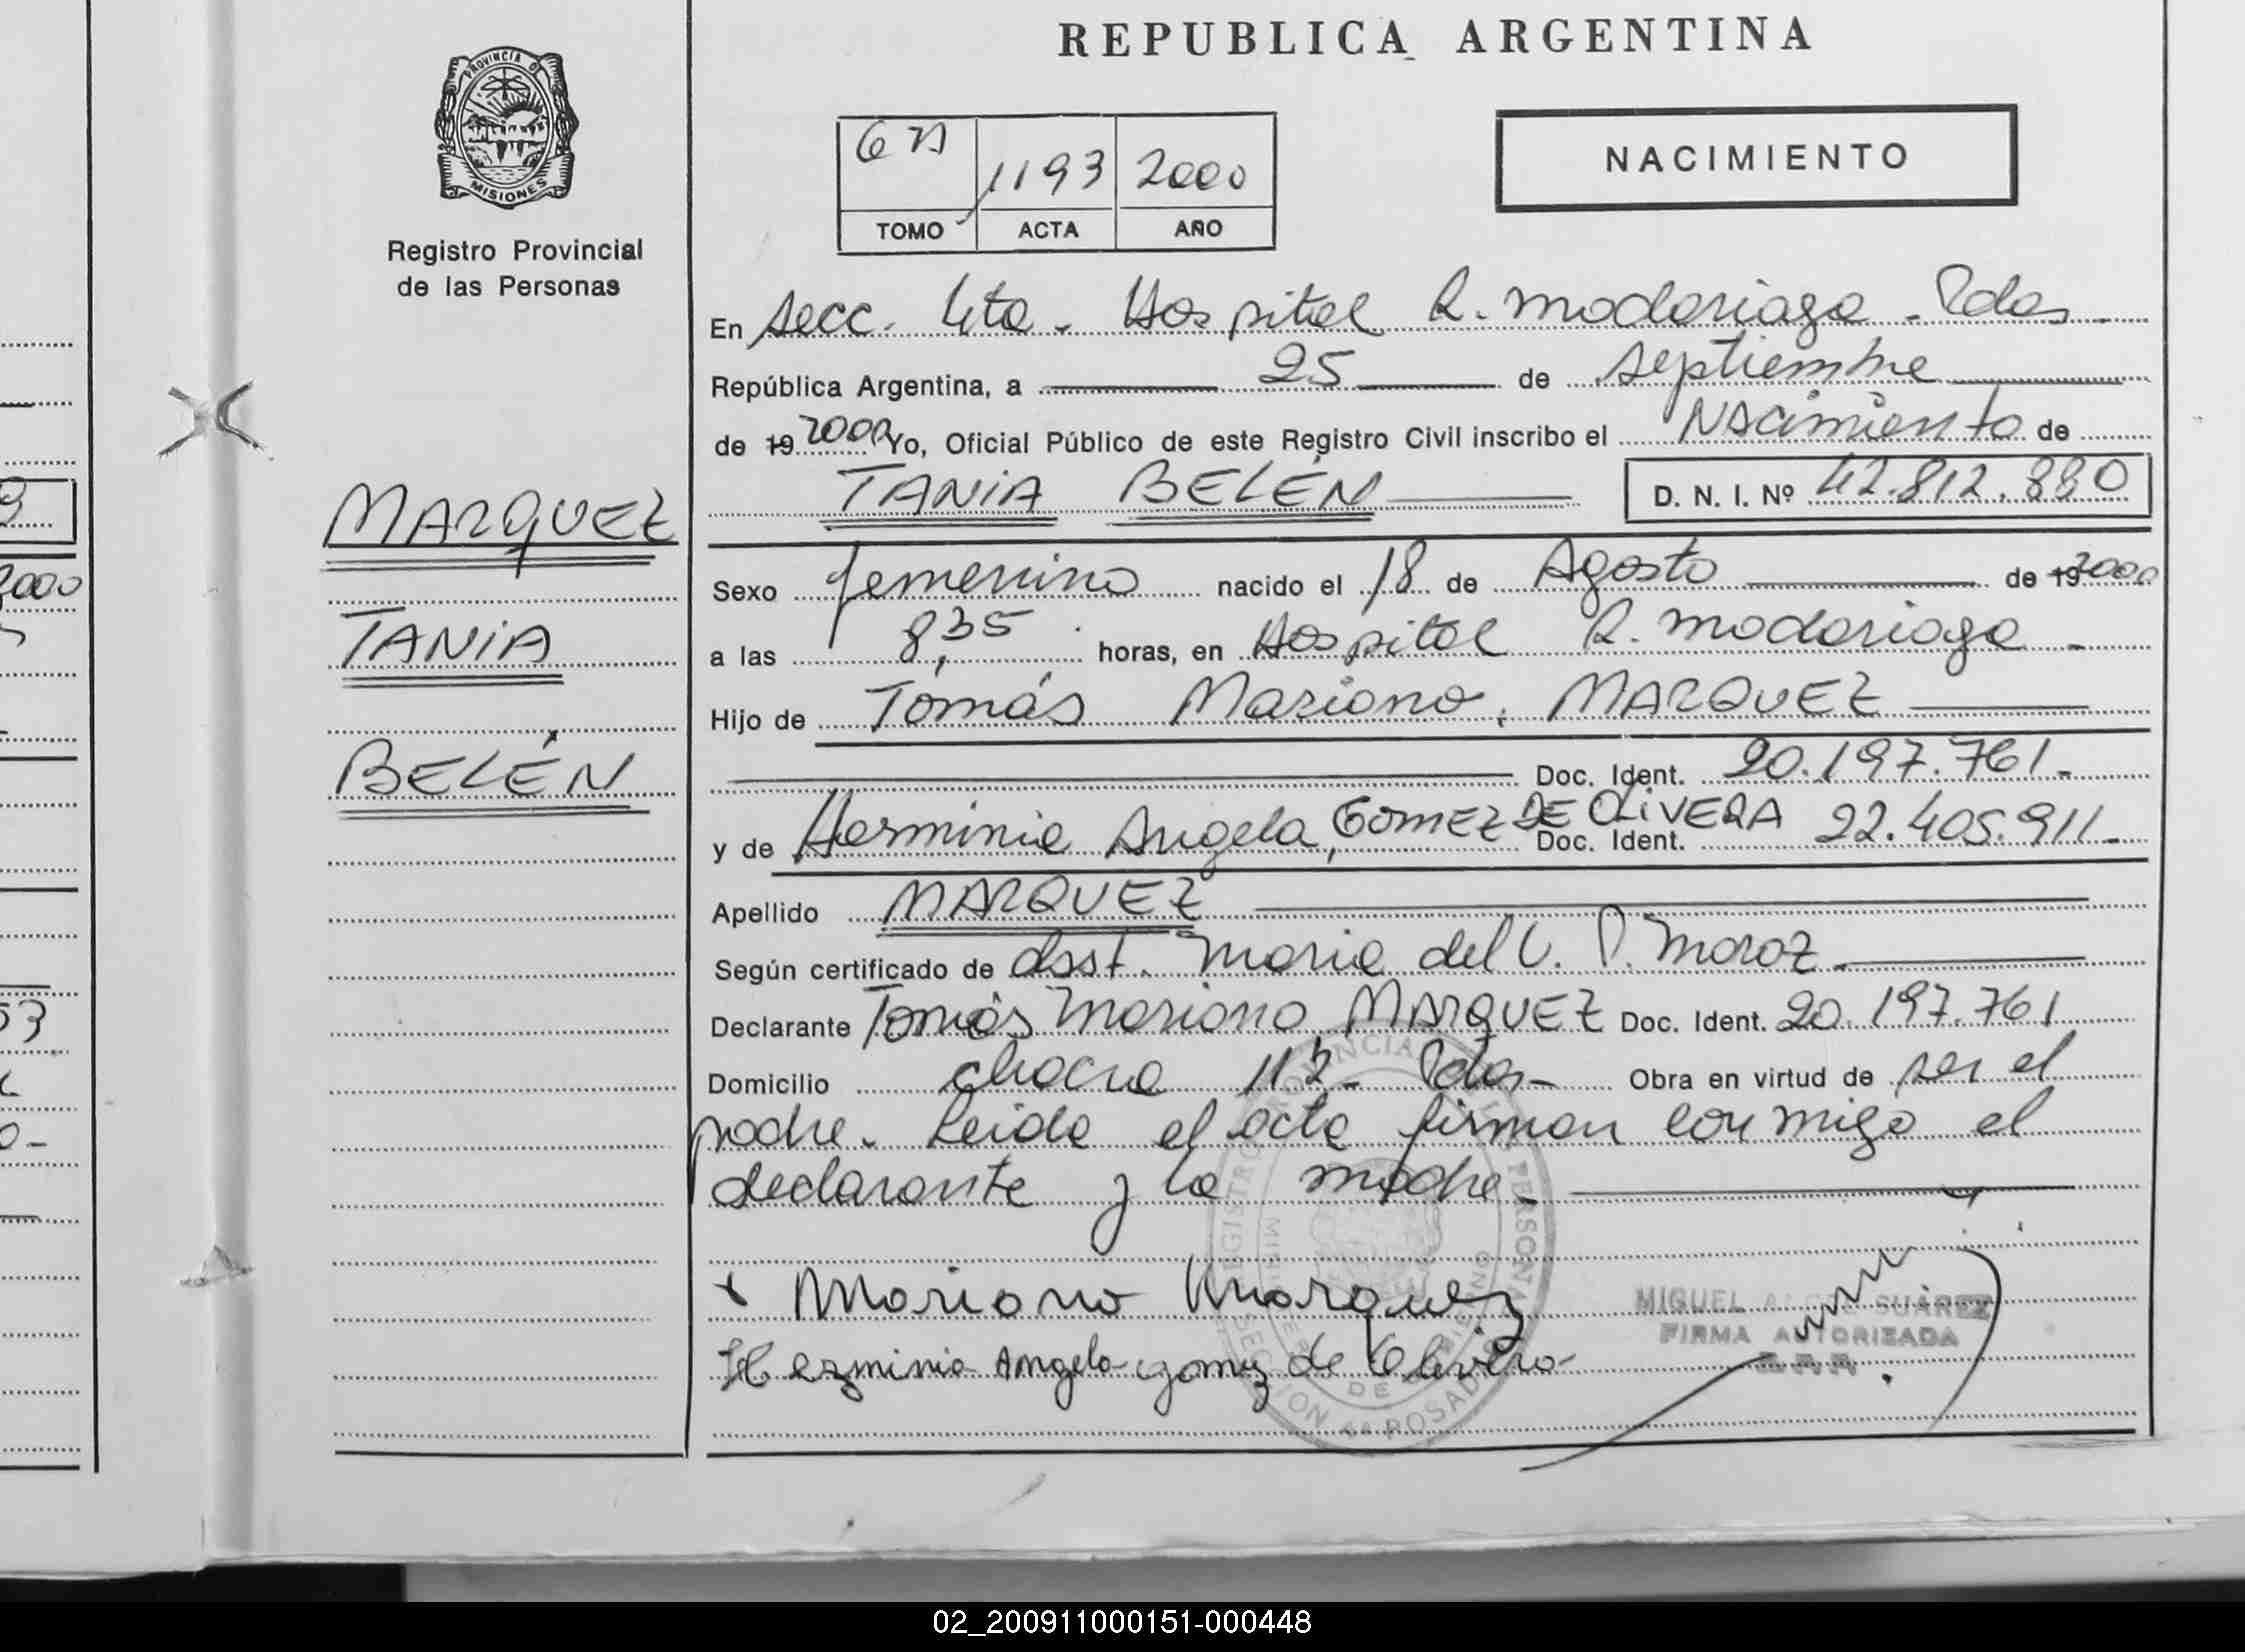 REPUBLICA ARGENTINA
PROVINCIA DE
MISIONES
Registro Provincial
de las Personas
1193 2000
TOMO ACTA AÑO
NACIMIENTO
En Secc. 4ta. Hospital R. Madariaga. Pdas.
República Argentina, a 25 de Septiembre
de 19 2000 Yo, Oficial Público de este Registro Civil inscribo el Nacimiento de
TANIA BELÉN D. N. I. Nº 42.812.880
MARQUEZ
TANIA
BELÉN
Sexo femenino nacido el 18 de Agosto de 19 2000
a las 8,35 horas, en Hospital R. Madariaga -
Hijo de Tomás Mariano, MARQUEZ
Doc. Ident. 20.197.761.-
y de Herminia Angela, GOMEZ DE OLIVERA Doc. Ident. 22.405.911.-
Apellido MARQUEZ
Según certificado de Obst. Maria del C. P. Moroz.
Declarante Tomás Mariano MARQUEZ Doc. Ident. 20.197.761
Domicilio chacra 112- Pdas- Obra en virtud de ser el
padre. Leida el acta firman conmigo el
declarante y la madre.
x Mariano Marquez
Herminia Angela gomez de Olivera
MIGUEL SUÁREZ
FIRMA AUTORIZADA
2000
53
02_200911000151-000448